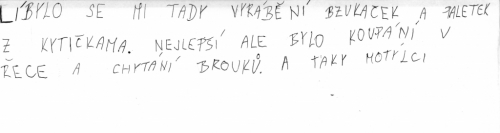 LÍBYLO SE MI TADY VYRÁBĚNÍ BZUKAČEK A PALETEK
Z KYTIČKAMA. NEJLEPŠÍ ALE BYLO KOUPÁNÍ V
ŘECE A CHYTÁNÍ BROUKŮ. A TAKY MOTÝLCI